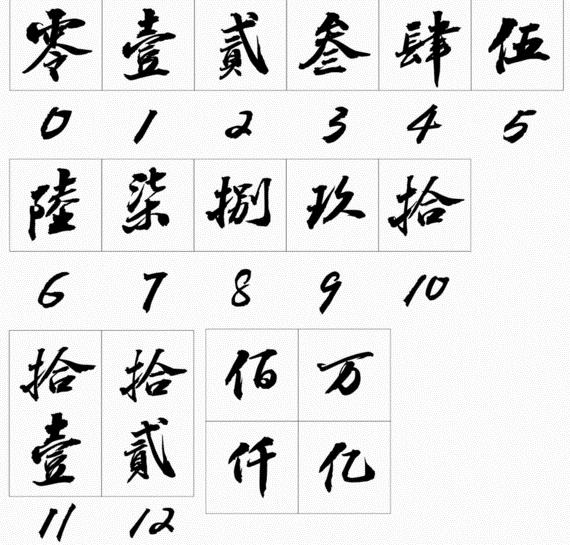 零 壹 貳 叁 肆 伍
0 1 2 3 4 5
陸 柒 捌 玖 拾
6 7 8 9 10
拾壹 拾貳
11 12
佰 万
仟 亿